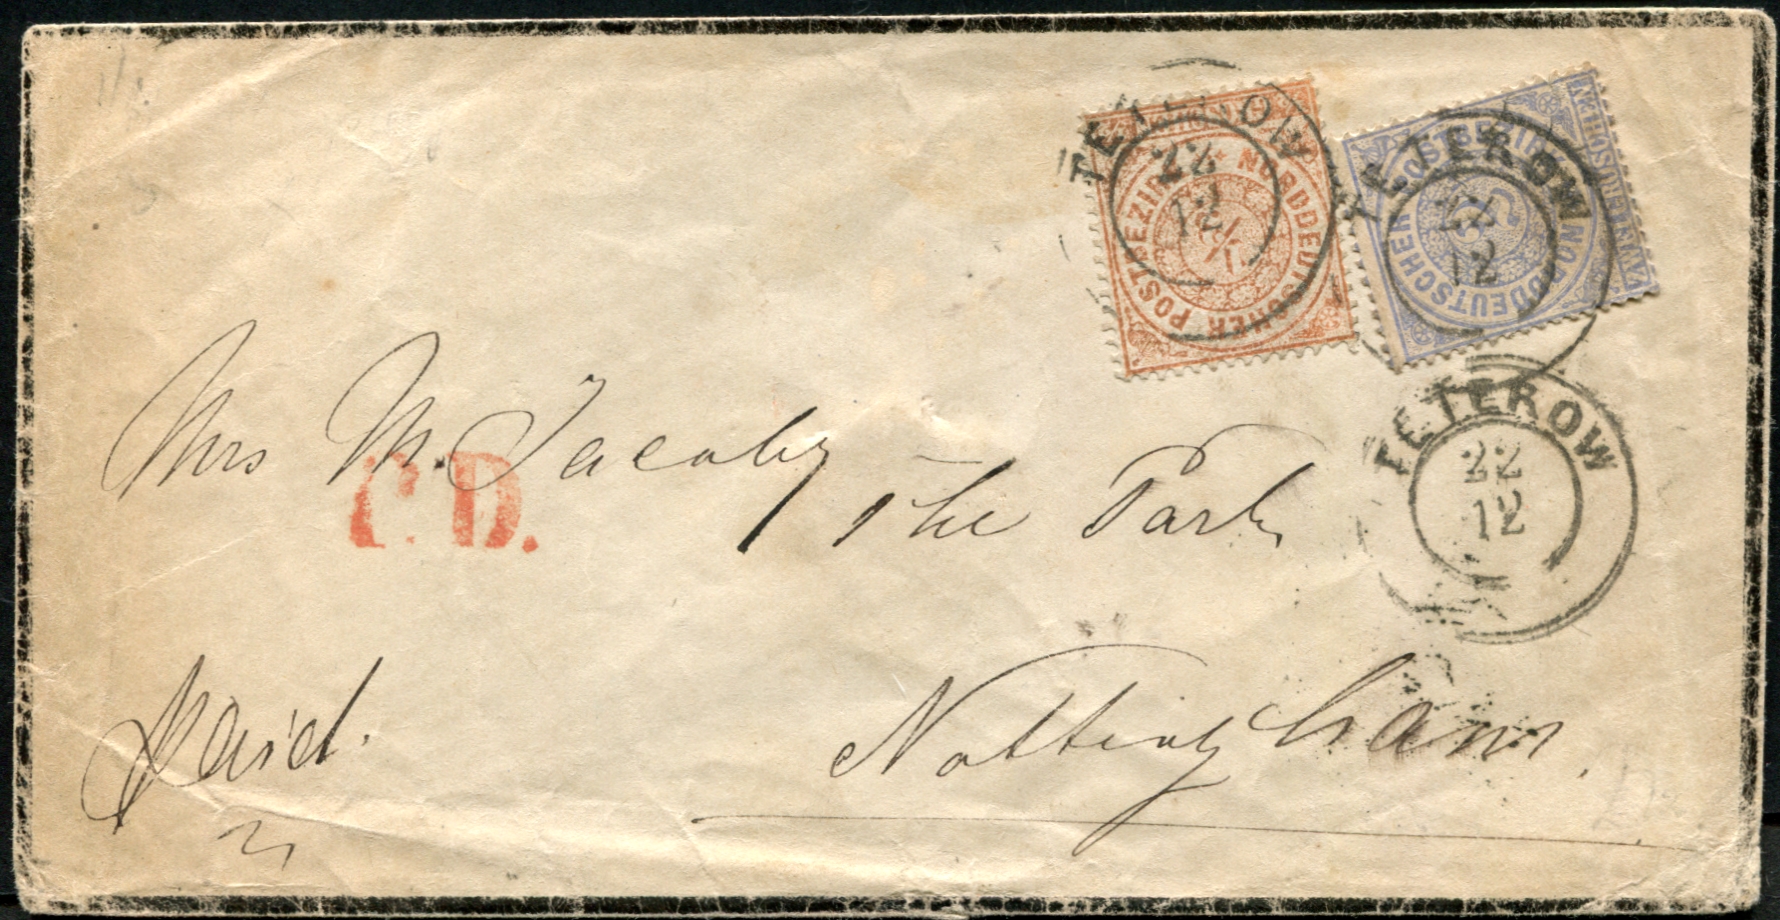 TETEROW
22
12
NORDDEUTSCHER POSTBEZIRK
1/2
TETEROW
22
12
NORDDEUTSCHER POSTBEZIRK
2
TETEROW
22
12
Mrs M. Jacoby
The Park
P.D.
Paid.
Nottingham.